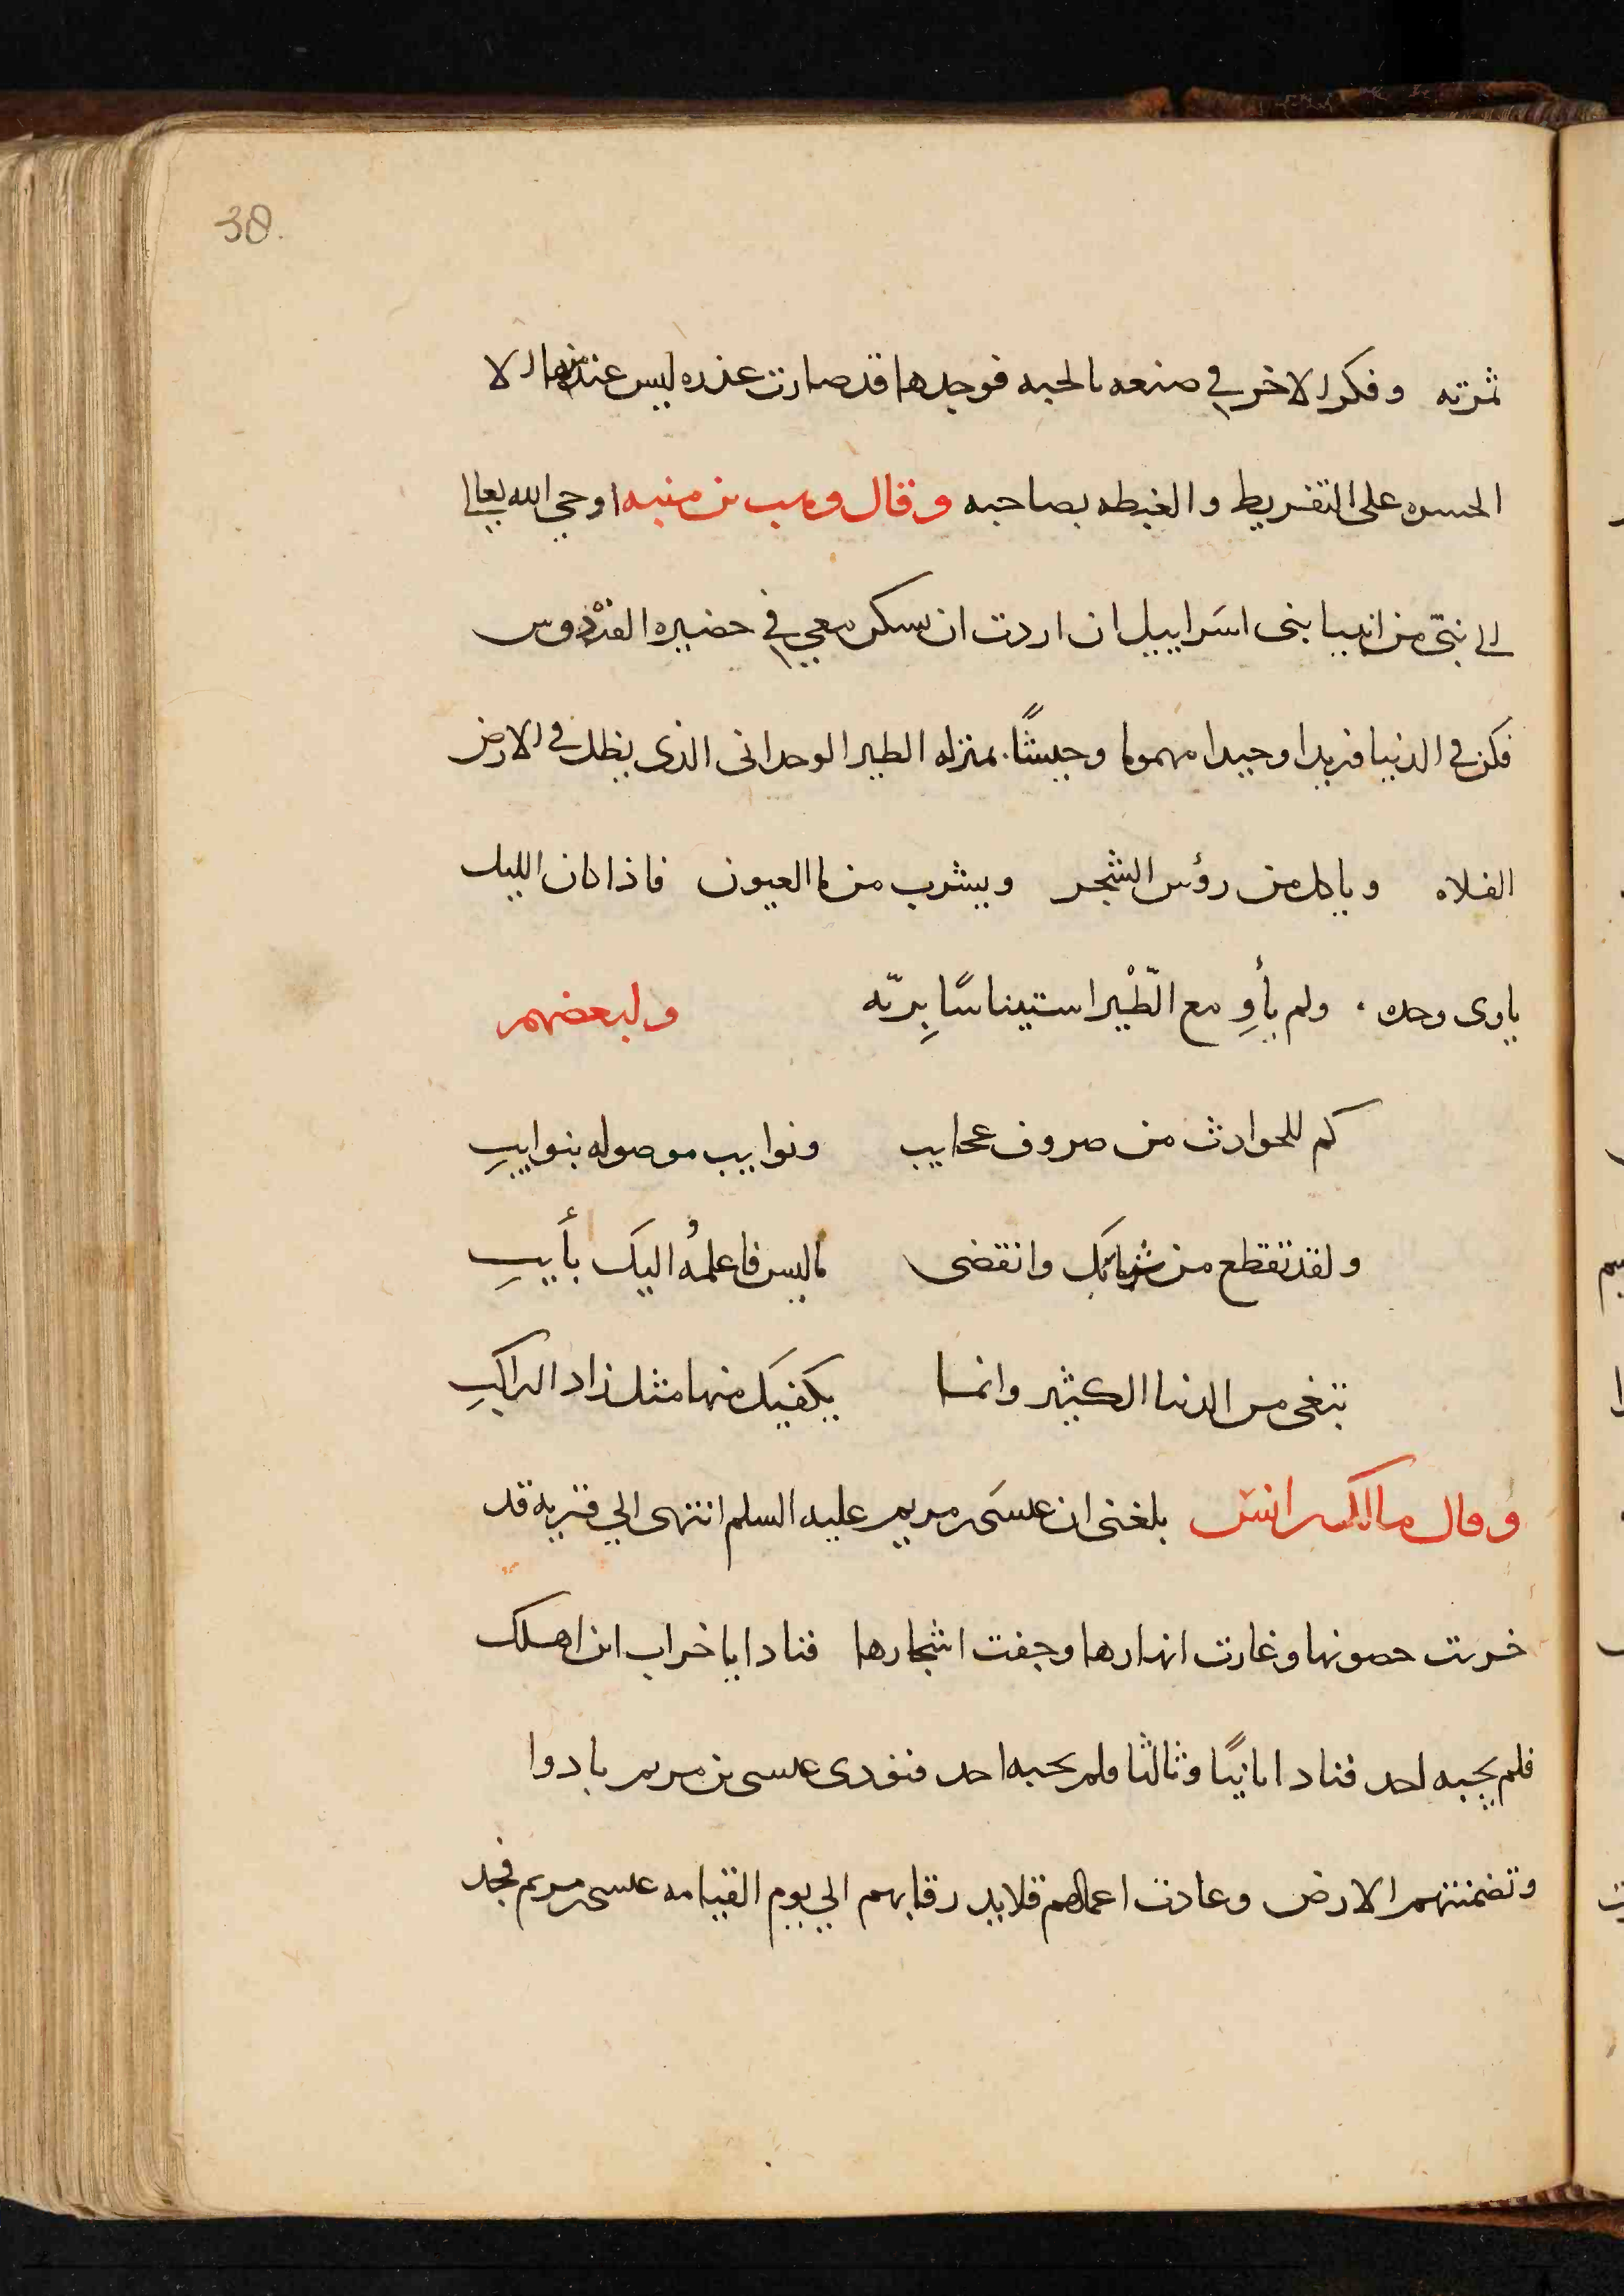 38.
ثمرته وفكر الاخر في صنعه بالحبه فوجدها قد صارت عذره ليس عنده منها الا
الحسره على التفريط والغبطه بصاحبه وقال وهب بن منبه اوحي الله تعالى
الى نبيّ من انبيا بنى اسَراييل ان اردت ان تسكن معي في حضيره القدْوس
فكن في الدنيا فريدا وحيدا مهموما وحيشًا بمنزله الطير الوحدانى الذى يظل في الارض
الفلاه وياكل من رؤس الشجر ويشرب من ما العيون فاذا كان الليل
ياوى وحده . ولم يأوِ مع الطّيْر استيناسًا بِربّه ولبعضهم
كم للحوادث من صروف عجايب ونوايب موصوله بنوايبِ
ولقد تقطع من شبابك وانقضى ما ليس فاعلمُه اليكَ بأيبِ
تبغى من الدنيا الكثير وانما يكفيك منها مثل زاد الراكبِ
وقال مالك بن انس بلغنى ان عيسَى بن مريم عليه السلم انتهى الي قريه قد
خربت حصونها وغارت انهارها وجفت اشجارها فنادا يا خراب اين اهلك
فلم يجبه احد فنادا ثانيًا وثالثا فلم يجبه احد فنودى عيسى بن مريم بادوا
وتضمنتهم الارض وعادت اعمالهم قلايد رقابهم الي يوم القيامه عيسى بن مريم فجد